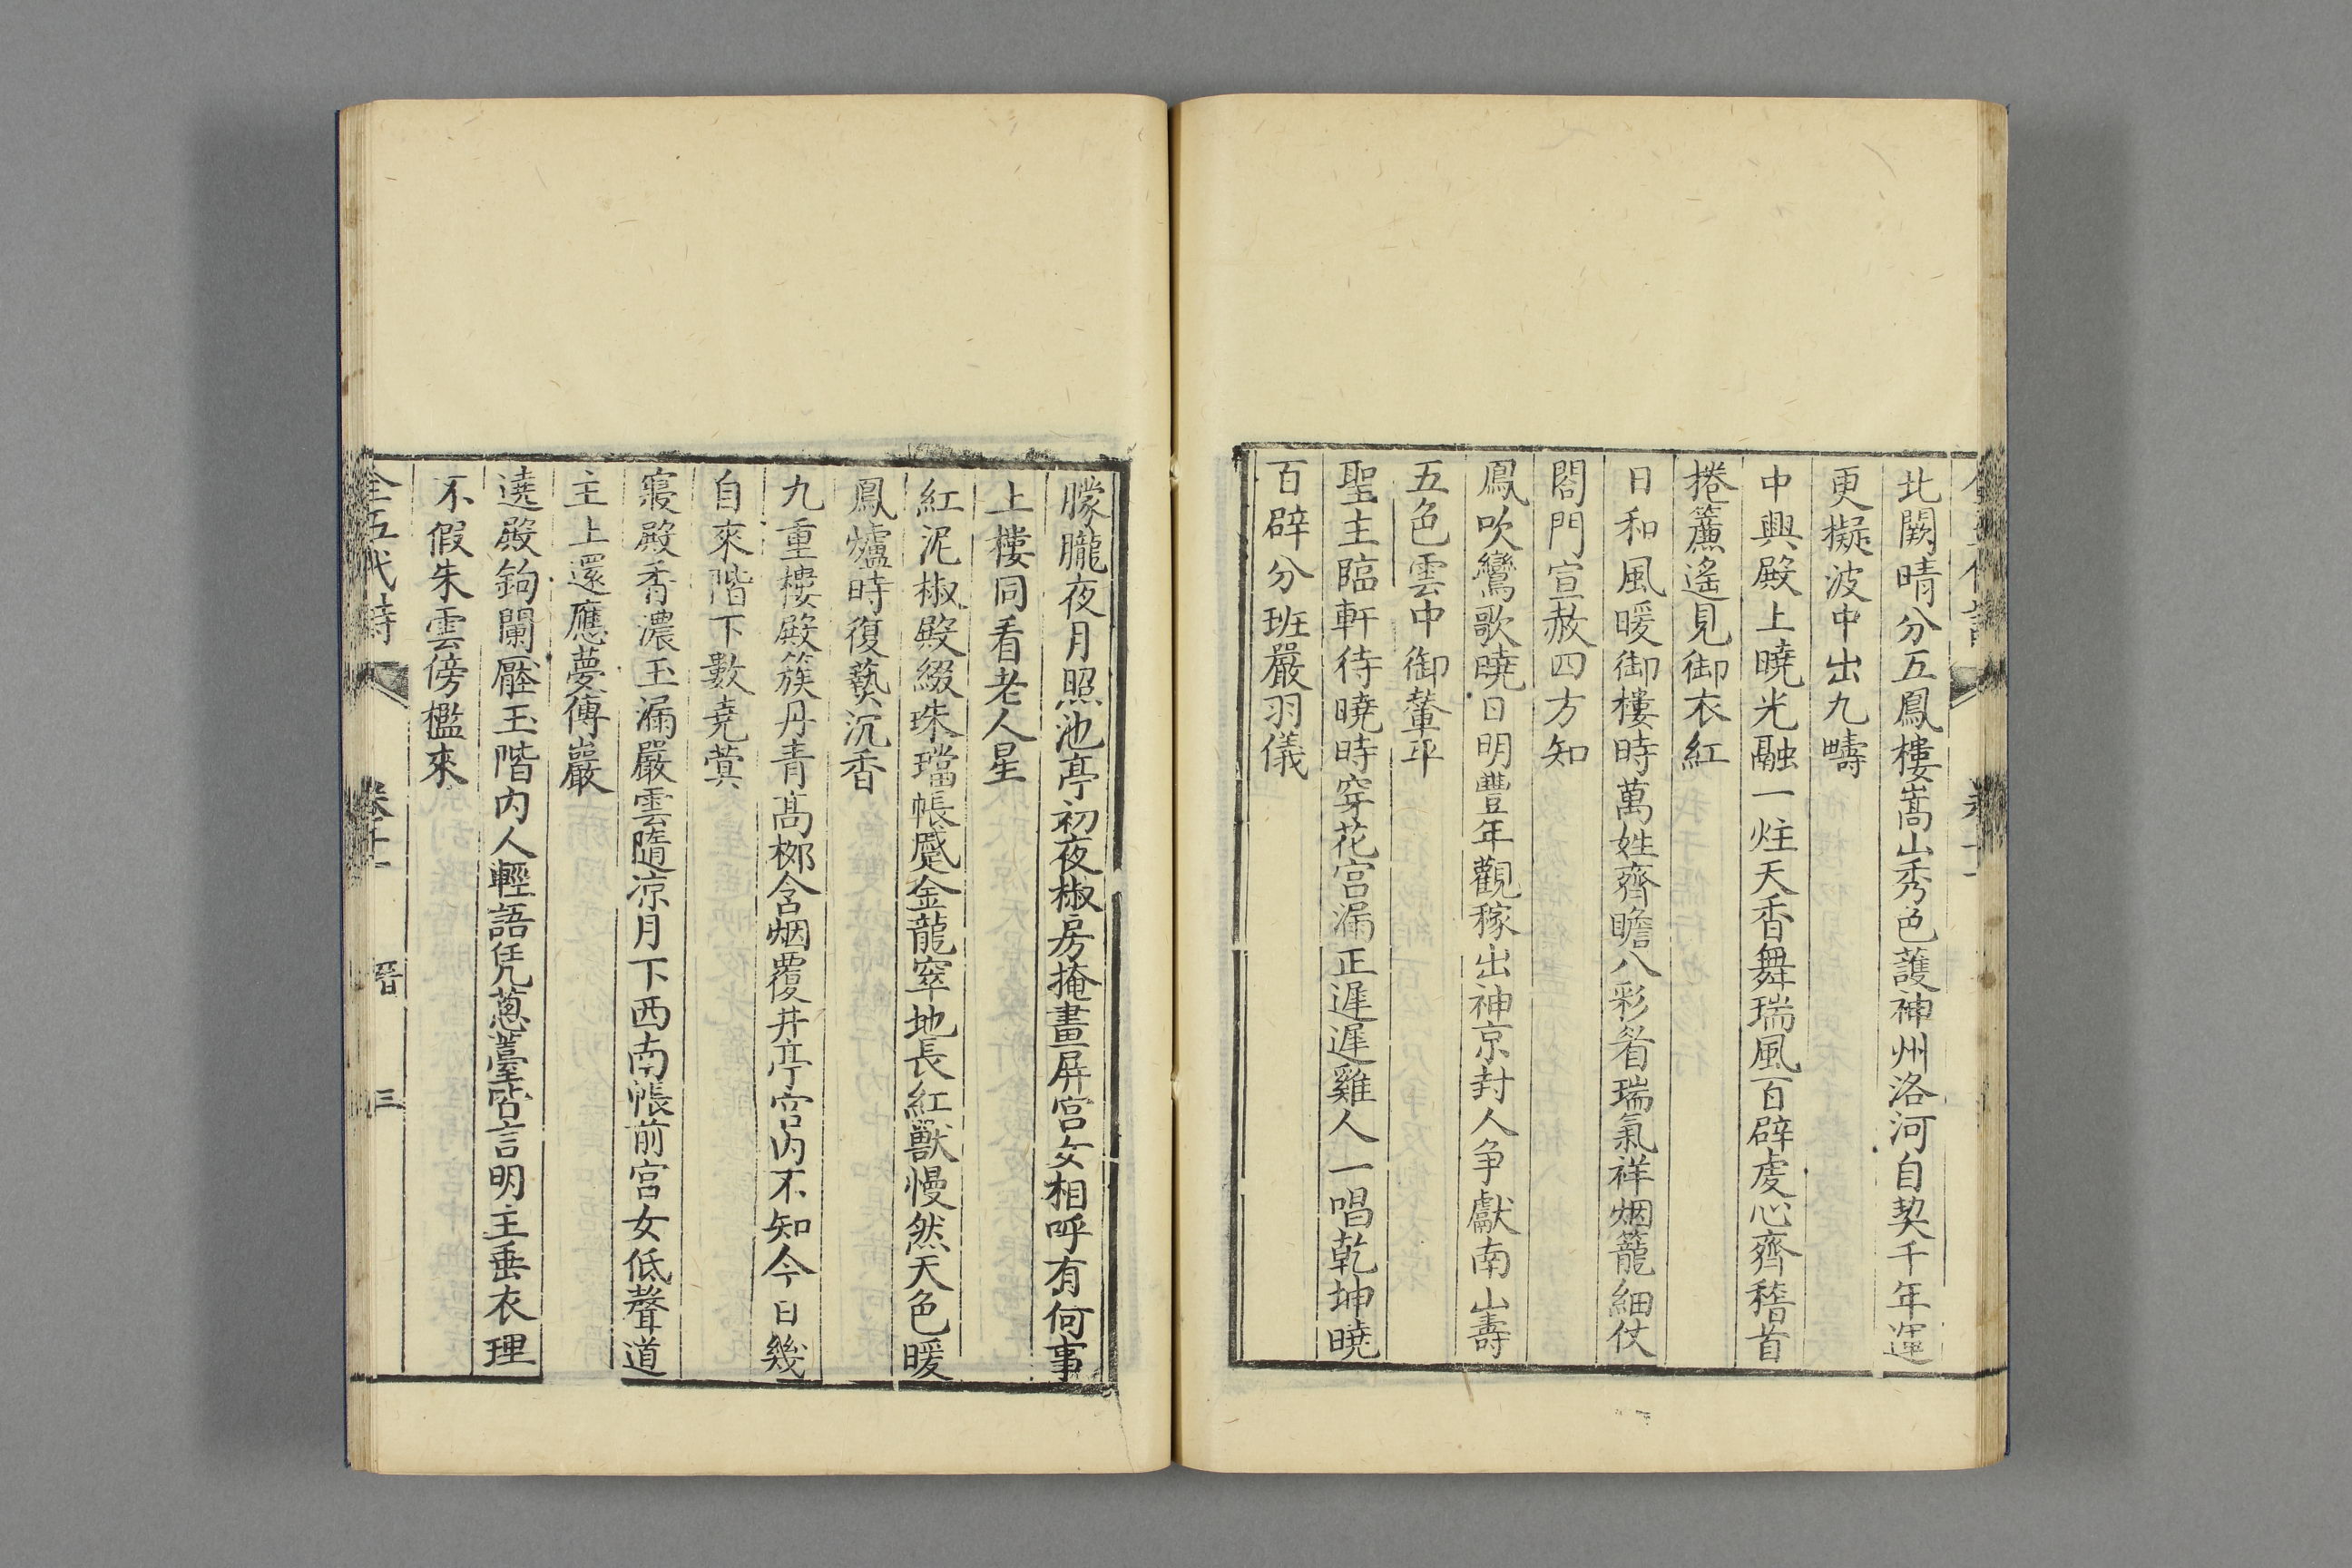 北闕晴分五鳳樓嵩山秀色護神州洛河自契千年運
更擬波中出九疇
中興殿上曉光融一炷天香舞瑞風百辟虔心齊稽首
捲簾遙見御衣紅
日和風暖御樓時萬姓齊瞻八彩眉瑞氣祥烟籠細仗
閤門宣赦四方知
鳳吹鸞歌曉日明豐年觀稼出神京封人争獻南山壽
五色雲中御輦平
聖主臨軒待曉時穿花宫漏正遲遲雞人一唱乾坤曉
百辟分班嚴羽儀
朦朧夜月照池亭初夜椒房掩畫屏宫女相呼有何事
上樓同看老人星
紅泥椒殿綴珠璫帳蹙金龍窣地長紅獸慢然天色暖
鳳爐時復爇沉香
九重樓殿簇丹青髙栁含烟覆井亭宫内不知今日幾
自來階下數堯蓂
寢殿香濃玉漏嚴雲隨凉月下西南帳前宫女低聲道
主上還應夢傅巖
遶殿鉤闌壓玉階内人輕語凭蔥薹皆言明主垂衣理
不假朱雲傍檻來
全五代詩 卷十一 晉 三